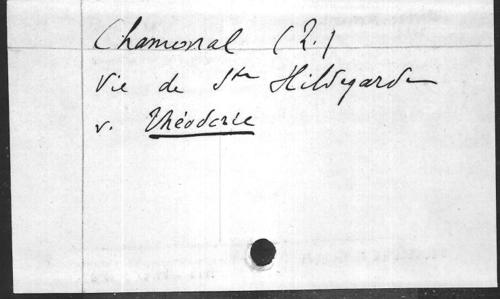 Chamonal (R.)
Vie de Ste Hildegarde
v. Théoderic